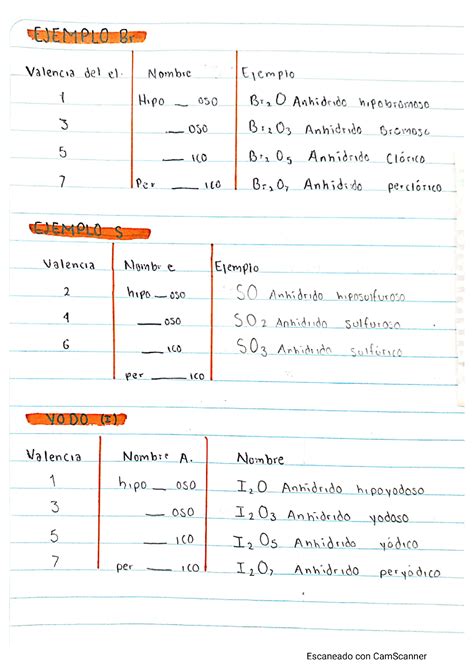 EJEMPLO Br
Valencia del el. Nombre Ejemplo
1 Hipo __ oso Br2O Anhidrido hipobromoso
3 __ oso Br2O3 Anhidrido Bromoso
5 __ ico Br2O5 Anhidrido Clórico
7 Per __ ico Br2O7 Anhidrido perclórico
EJEMPLO S
Valencia Nombre Ejemplo
2 hipo __ oso SO Anhidrido hiposulfuroso
4 __ oso SO2 Anhidrido sulfuroso
6 __ ico SO3 Anhidrido sulfúrico
per __ ico
YODO (I)
Valencia Nombre A. Nombre
1 hipo __ oso I2O Anhidrido hipoyodoso
3 __ oso I2O3 Anhidrido yodoso
5 __ ico I2O5 Anhidrido yódico
7 per __ ico I2O7 Anhidrido peryódico
Escaneado con CamScanner